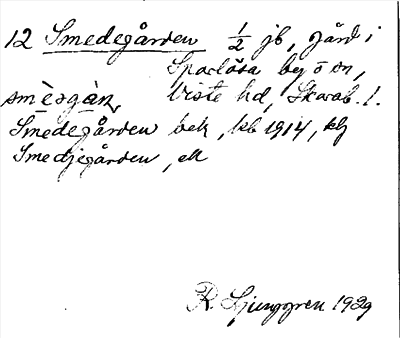 12 Smedegården 1/2 jb, gård i
Sparlösa by o sn,
smèsgàn, Viste hd, Skarab. l.
Smedegården bek, kb 1914, klj
Smedjegården, ek
R. Ljunggren 1929